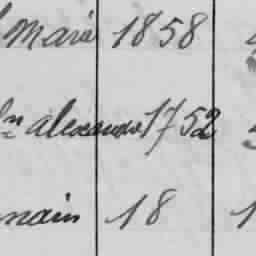 Marie 1858
alexandre 1752
main 18